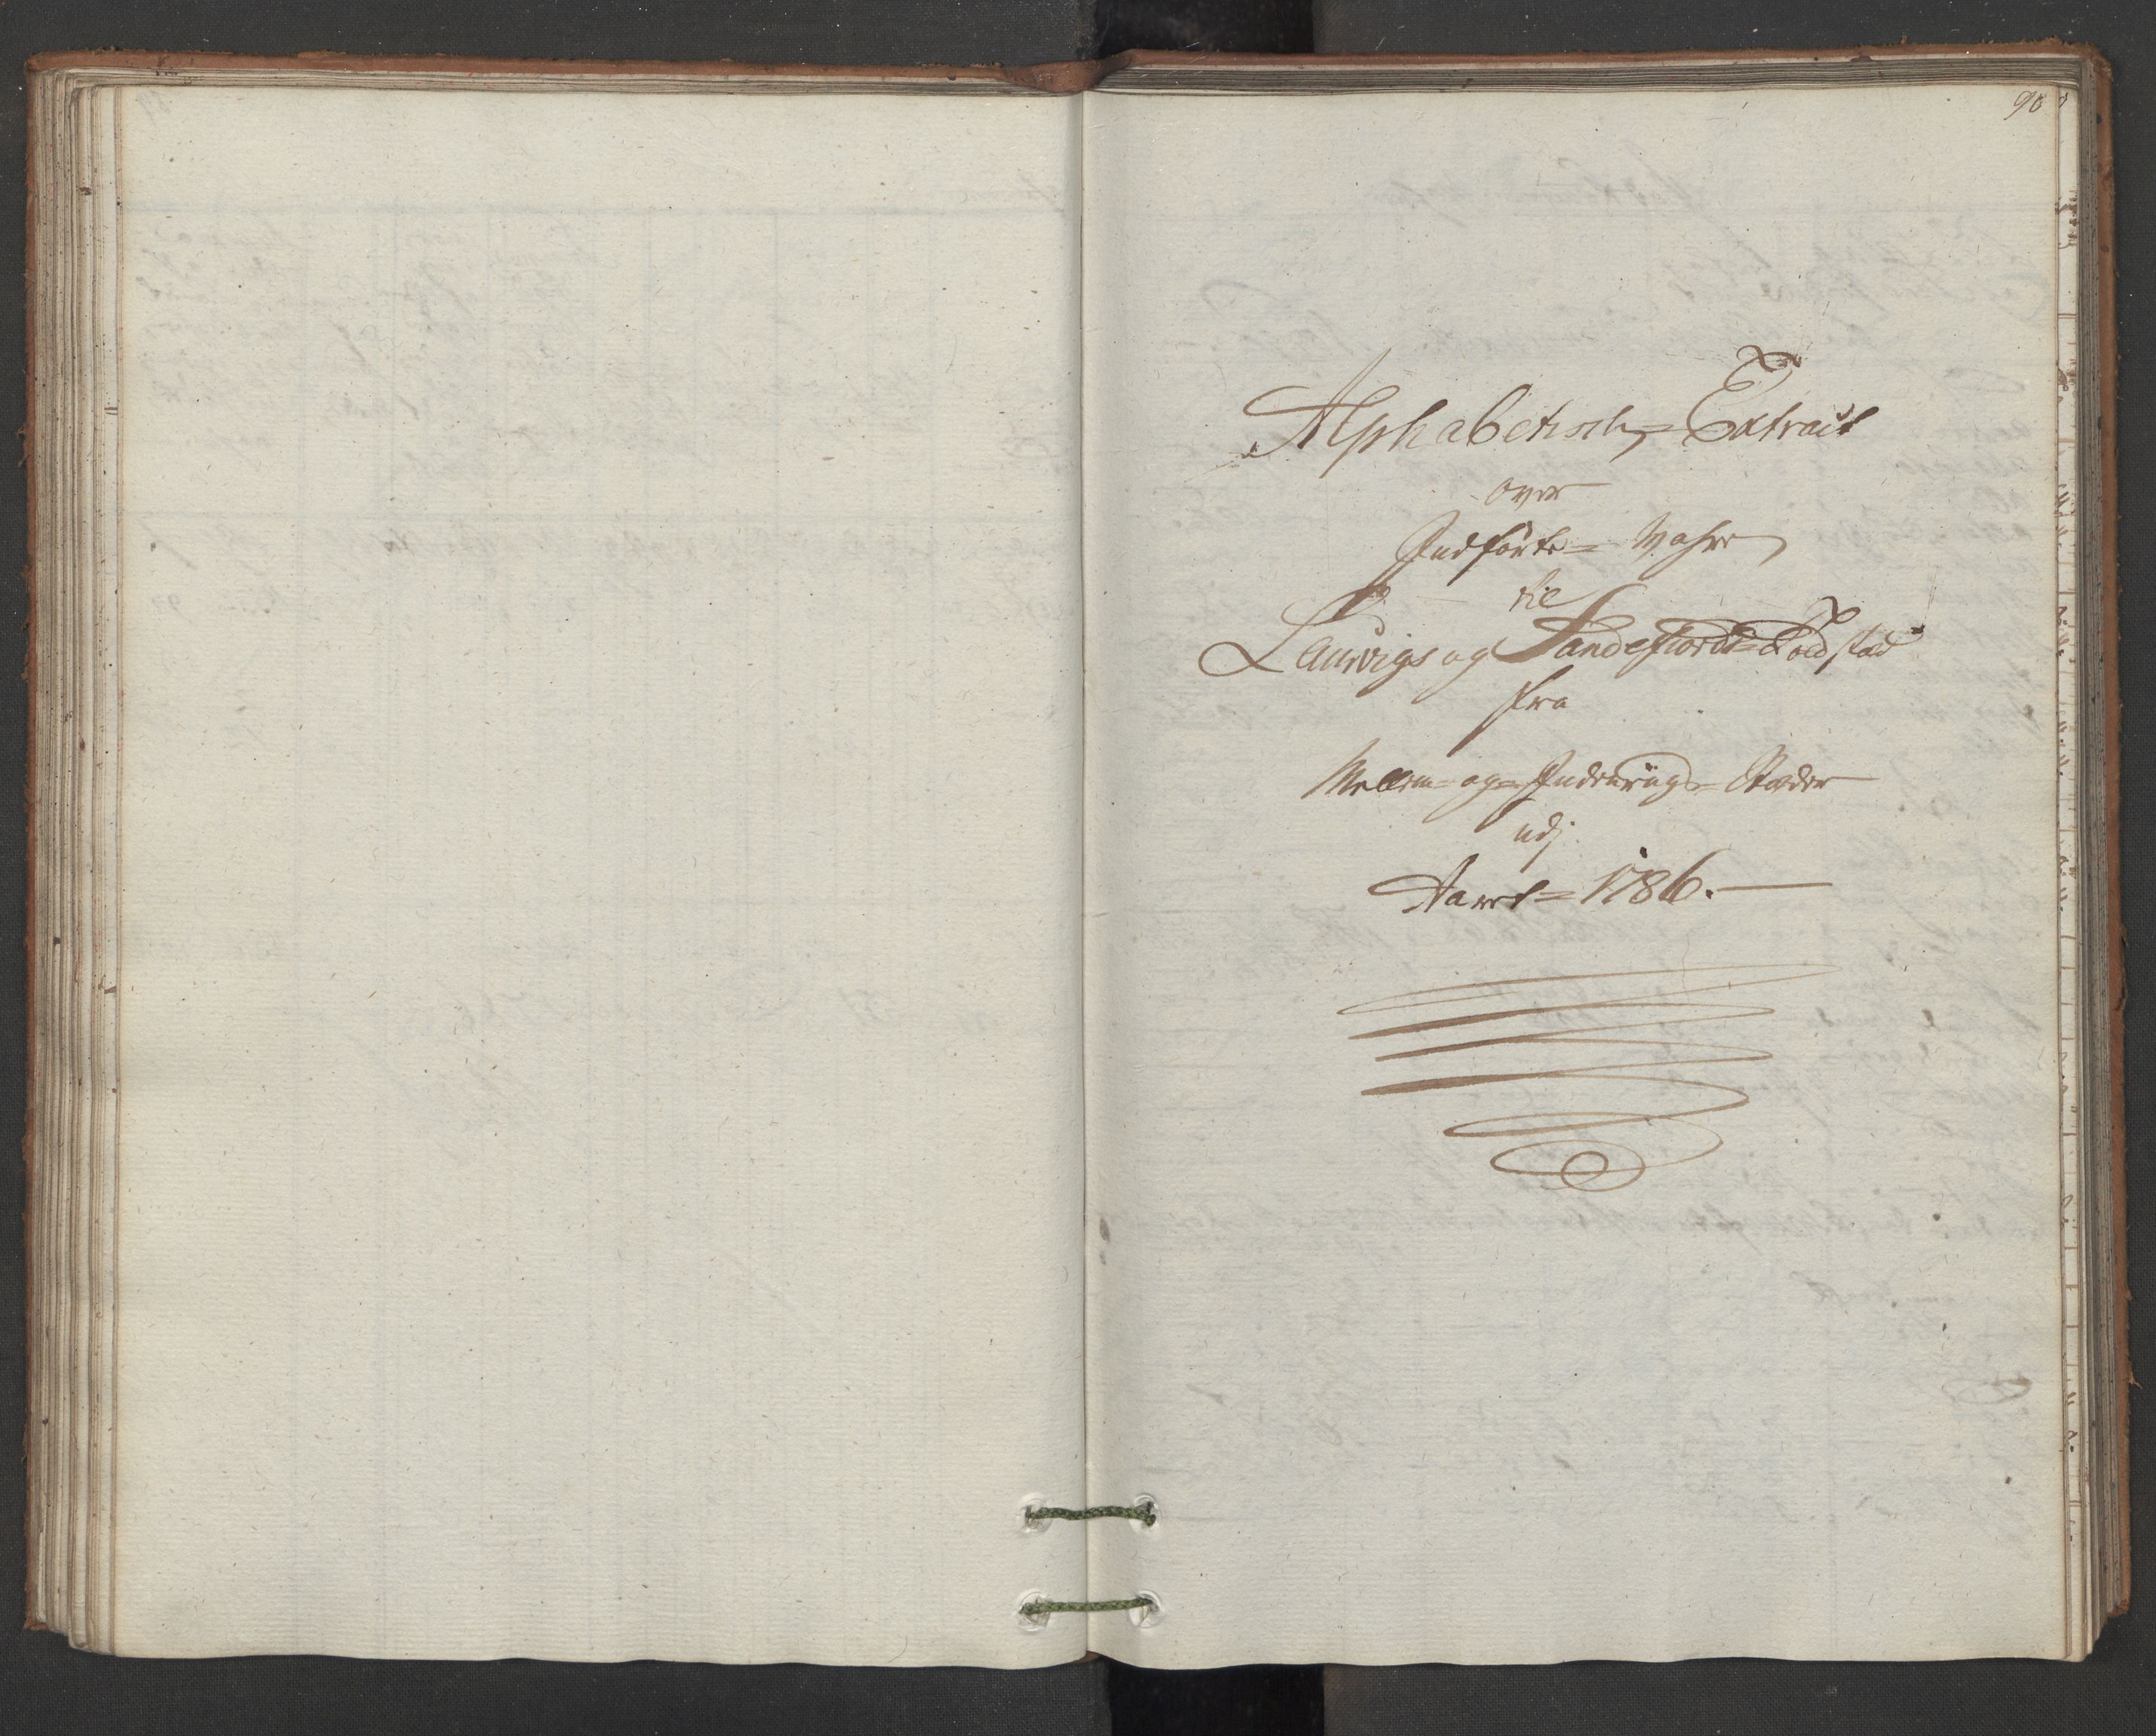 90
Alphabetisch Extract
over
Indførte Wahre
til
Laurvigs og Sandefiords Toldsted
fra
Mellem- og Indenrigs- Stæder
udj
Aaret 1786.